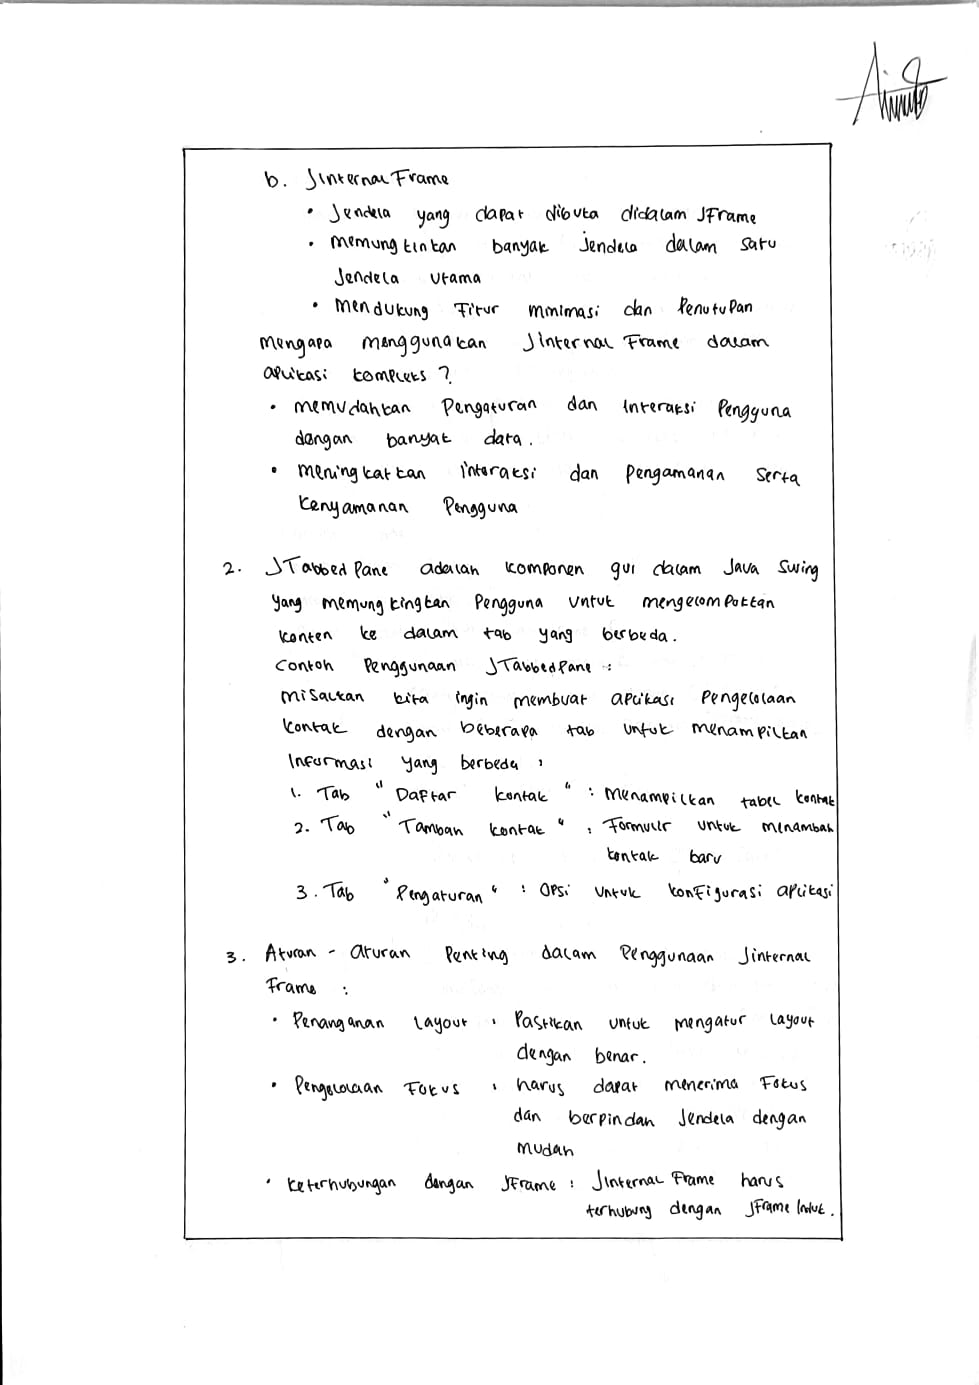 b. JInternal Frame
• Jendela yang dapat dibuta didalam JFrame
• Memungkinkan banyak jendela dalam satu
Jendela utama
• Mendukung Fitur mnimasi dan Penutupan
Mengapa menggunakan JInternal Frame dalam
aplikasi kompleks ?
• Memudahkan Pengaturan dan Interaksi Pengguna
dengan banyak data.
• Meningkatkan interaksi dan Pengamanan serta
Kenyamanan Pengguna
2. JTabbed Pane adalah komponen gui dalam Java Swing
Yang memungkingkan Pengguna untuk mengelompokkan
konten ke dalam tab yang berbeda.
Contoh Penggunaan JTabbedPane :
Misalkan kita ingin membuat aplikasi Pengelolaan
kontak dengan beberapa tab untuk menampilkan
Informasi yang berbeda :
1. Tab "Daftar kontak" : Menampilkan tabel kontak
2. Tab "Tambah kontak" : Formulir untuk menambah
kontak baru
3. Tab "Pengaturan" : Opsi untuk konfigurasi aplikasi
3. Aturan - aturan Penting dalam Penggunaan Jinternal
Frame :
• Penanganan Layout : Pastikan untuk mengatur layout
dengan benar.
• Pengelolaan Fokus : harus dapat menerima Fokus
dan berpindah Jendela dengan
mudah
• keterhubungan dengan JFrame : JInternal Frame harus
terhubung dengan JFrame Induk.